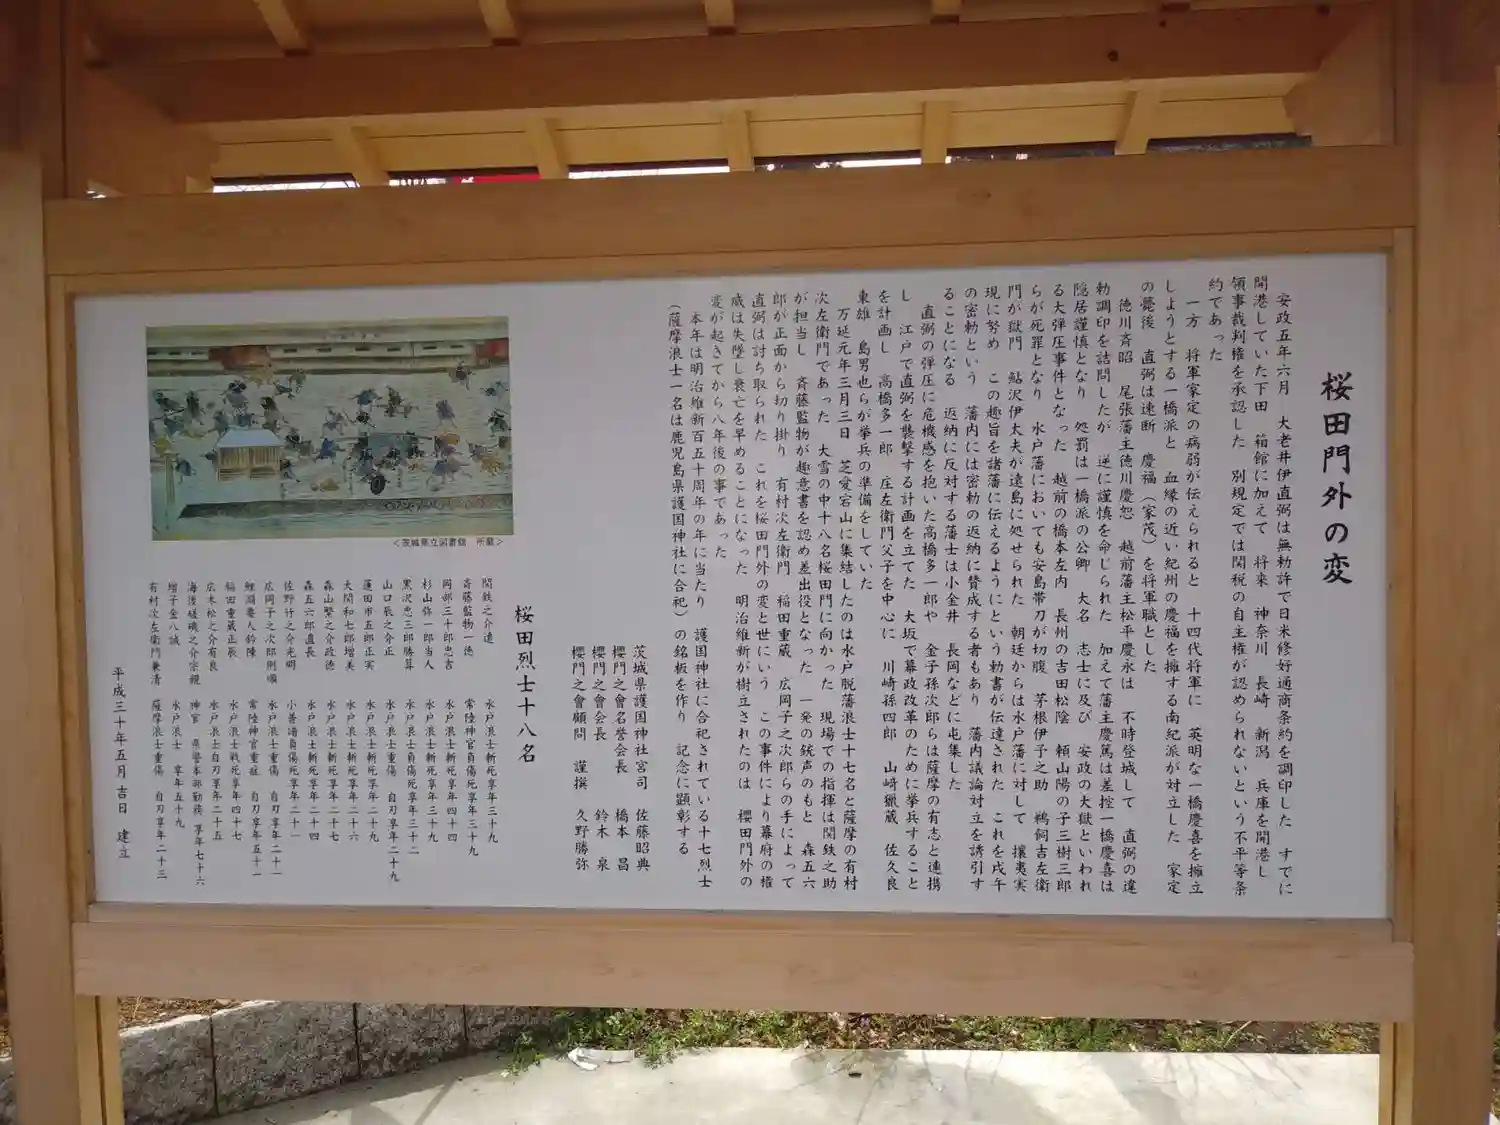 桜田門外の変
安政五年六月 大老井伊直弼は無勅許で日米修好通商条約を調印した すでに
開港していた下田 箱館に加えて 将来 神奈川 長崎 新潟 兵庫を開港し
領事裁判権を承認した 別規定では関税の自主権が認められないという不平等条
約であった
一方 将軍家定の病弱が伝えられると 十四代将軍に 英明な一橋慶喜を擁立
しようとする一橋派と 血縁の近い紀州の慶福を擁する南紀派が対立した 家定
の薨後 直弼は速断 慶福(家茂)を将軍職とした
徳川斉昭 尾張藩主徳川慶恕 越前藩主松平慶永は 不時登城して 直弼の違
勅調印を詰問したが 逆に謹慎を命じられた 加えて藩主慶篤は差控一橋慶喜は
隠居謹慎となり 処罰は一橋派の公卿 大名 志士に及び 安政の大獄といわれ
る大弾圧事件となった 越前の橋本左内 長州の吉田松陰 頼山陽の子三樹三郎
らが死罪となり 水戸藩においても安島帯刀が切腹 茅根伊予之助 鵜飼吉左衛
門が獄門 鮎沢伊太夫が遠島に処せられた 朝廷からは水戸藩に対して 攘夷実
現に努め この趣旨を諸藩に伝えるようにという勅書が伝達された これを戊午
の密勅という 藩内には密勅の返納に賛成する者もあり 藩内議論対立を誘引す
ることになる 返納に反対する藩士は小金井 長岡などに屯集した
直弼の弾圧に危機感を抱いた高橋多一郎や 金子孫次郎らは薩摩の有志と連携
し 江戸で直弼を襲撃する計画を立てた 大坂で幕政改革のために挙兵すること
を計画し 高橋多一郎 庄左衛門父子を中心に 川崎孫四郎 山﨑獵蔵 佐久良
東雄 島男也らが挙兵の準備をしていた
万延元年三月三日 芝愛宕山に集結したのは水戸脱藩浪士十七名と薩摩の有村
次左衛門であった 大雪の中十八名桜田門に向かった 現場での指揮は関鉄之助
が担当し 斉藤監物が趣意書を認め差出役となった 一発の銃声のもと 森五六
郎が正面から切り掛り 有村次左衛門 稲田重蔵 広岡子之次郎らの手によって
直弼は討ち取られた これを桜田門外の変と世にいう この事件により幕府の権
威は失墜し衰亡を早めることになった 明治維新が樹立されたのは 櫻田門外の
変が起きてから八年後の事であった
本年は明治維新百五十周年の年に当たり 護国神社に合祀されている十七烈士
(薩摩浪士一名は鹿児島県護国神社に合祀)の銘板を作り 記念に顕彰する
茨城県護国神社宮司 佐藤昭典
櫻門之會名誉会長 橋本 昌
櫻門之會会長 鈴木 泉
櫻門之會顧問 謹撰 久野勝弥
<茨城県立図書館 所蔵>
桜田烈士十八名
関鉄之介遠 水戸浪士斬死享年三十九
斉藤監物一徳 常陸神官負傷死享年三十九
岡部三十郎忠吉 水戸浪士斬死享年四十四
杉山弥一郎当人 水戸浪士斬死享年三十九
黒沢忠三郎勝算 水戸浪士負傷死享年三十二
山口辰之介正 水戸浪士重傷 自刃享年二十九
蓮田市五郎正実 水戸浪士斬死享年二十九
大関和七郎増美 水戸浪士斬死享年二十六
森山繁之介政徳 水戸浪士斬死享年二十七
森五六郎直長 水戸浪士斬死享年二十四
佐野竹之介光明 小普請負傷死享年二十一
広岡子之次郎則順 水戸浪士重傷 自刃享年二十一
鯉淵要人鈐陳 常陸神官重症 自刃享年五十一
稲田重蔵正辰 水戸浪士戦死享年四十七
広木松之介有良 水戸浪士自刃享年二十五
海後磋磯之介宗親 神官 県警本部勤務 享年七十六
増子金八誠 水戸浪士 享年五十九
有村次左衛門兼清 薩摩浪士重傷 自刃享年二十三
平成三十年五月吉日 建立